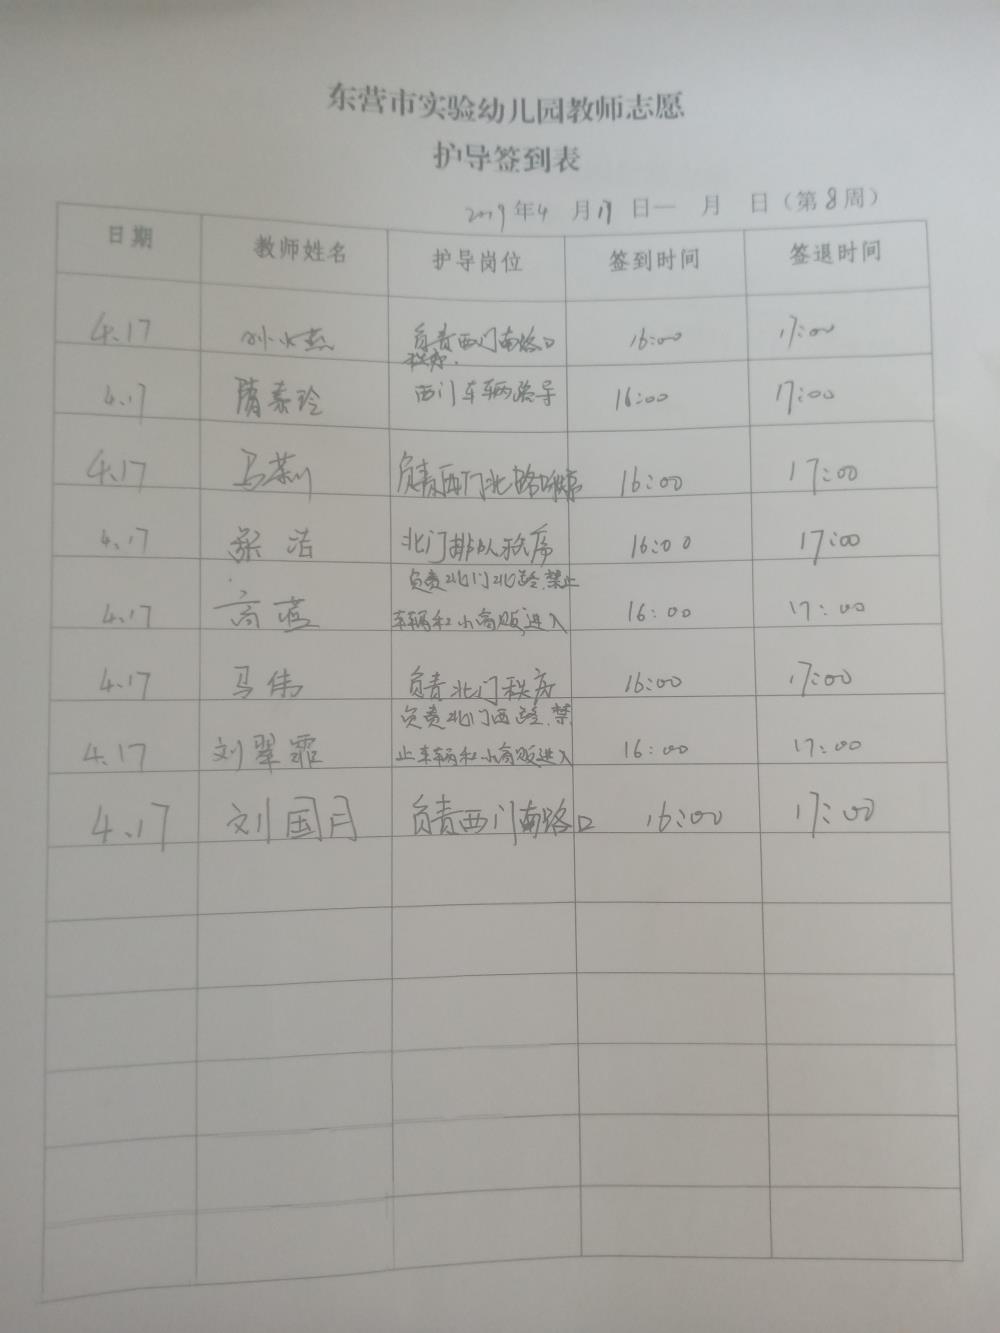 东营市实验幼儿园教师志愿
护导签到表
2019年4月17日— 月 日（第8周）
日期 教师姓名 护导岗位 签到时间 签退时间
4.17 负责西门南路口 16:00 17:00
秩序.
4.17 隋泰玲 西门车辆疏导 16:00 17:00
4.17 马莉 负责西门北路口秩序 16:00 17:00
4.17 张洁 北门排队秩序 16:00 17:00
负责北门北路,禁止
4.17 高燕 车辆和小商贩进入 16:00 17:00
4.17 马伟 负责北门秩序 16:00 17:00
负责北门西路,禁
4.17 刘翠霏 止车辆和小商贩进入 16:00 17:00
4.17 刘国月 负责西门南路口 16:00 17:00